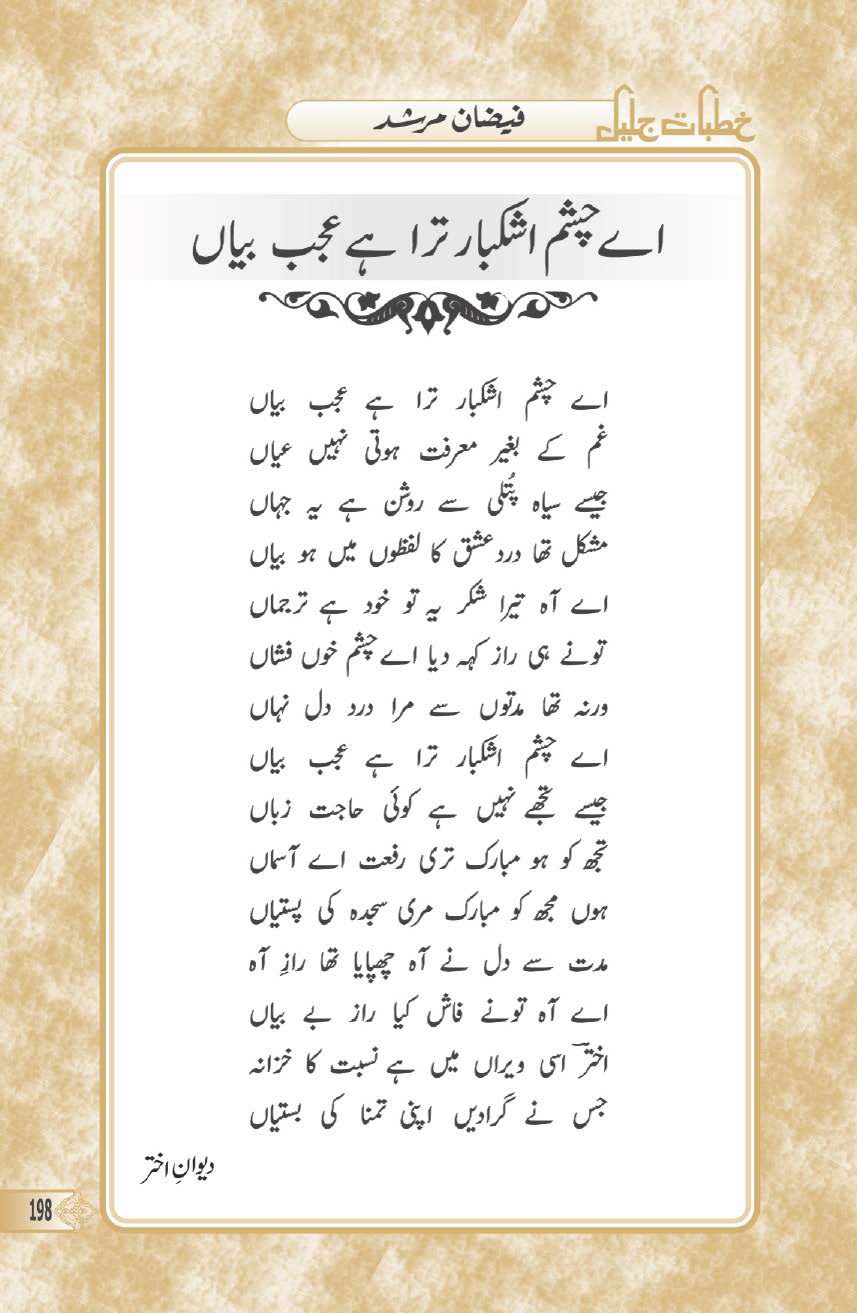 خطبات جلیل
فیضان مرشد
اے چشم اشکبار ترا ہے عجب بیاں
اے چشم اشکبار ترا ہے عجب بیاں
غم کے بغیر معرفت ہوتی نہیں عیاں
جیسے سیاہ پُتلی سے روشن ہے یہ جہاں
مشکل تھا درد عشق کا لفظوں میں ہو بیاں
اے آہ تیرا شکر یہ تو خود ہے ترجماں
تونے ہی راز کہہ دیا اے چشم خوں فشاں
ورنہ تھا مدتوں سے مرا درد دل نہاں
اے چشم اشکبار ترا ہے عجب بیاں
جیسے تجھے نہیں ہے کوئی حاجت زباں
تجھ کو ہو مبارک تری رفعت اے آسماں
ہوں مجھ کو مبارک مری سجدہ کی پستیاں
مدت سے دل نے آہ چھپایا تھا رازِ آہ
اے آہ تونے فاش کیا راز بے بیاں
اخترؔ اسی ویراں میں ہے نسبت کا خزانہ
جس نے گرادیں اپنی تمنا کی بستیاں
دیوانِ اختر
198